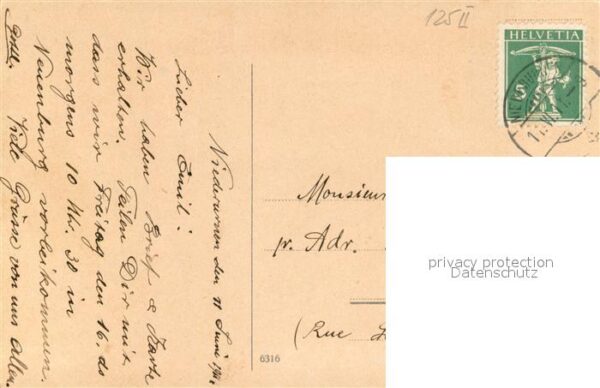 125 II
HELVETIA
5
Niederurnen den 11 Juni
Lieber Emil!
Wir haben Brief & Karte
erhalten. Teilen Dir mit
dass wir Freitag den 16. ds
morgens 10 Uhr. 30 in
Neuenburg vorbeikommen.
Viele Grüsse von uns Allen.
Gottl.
Monsieur
pr. Adr.
(Rue
6316
privacy protection
Datenschutz